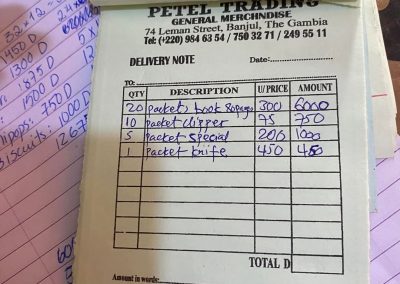 PETEL TRADING
GENERAL MERCHNDISE
74 Leman Street, Banjul, The Gambia
Tel: (+220) 984 63 54 / 750 32 71 / 249 55 11
DELIVERY NOTE Date:
TO:
QTY DESCRIPTION U/PRICE AMOUNT
20 Packets book 80pages 300 6000
10 Packet clipper 75 750
5 Packet special 200 1000
1 Packet knife 450 450
TOTAL D
Amount in words:
32 x 12 =
1450 D
1300 D
1875 D
1500 D
750 D
Biscuits: 1000 D